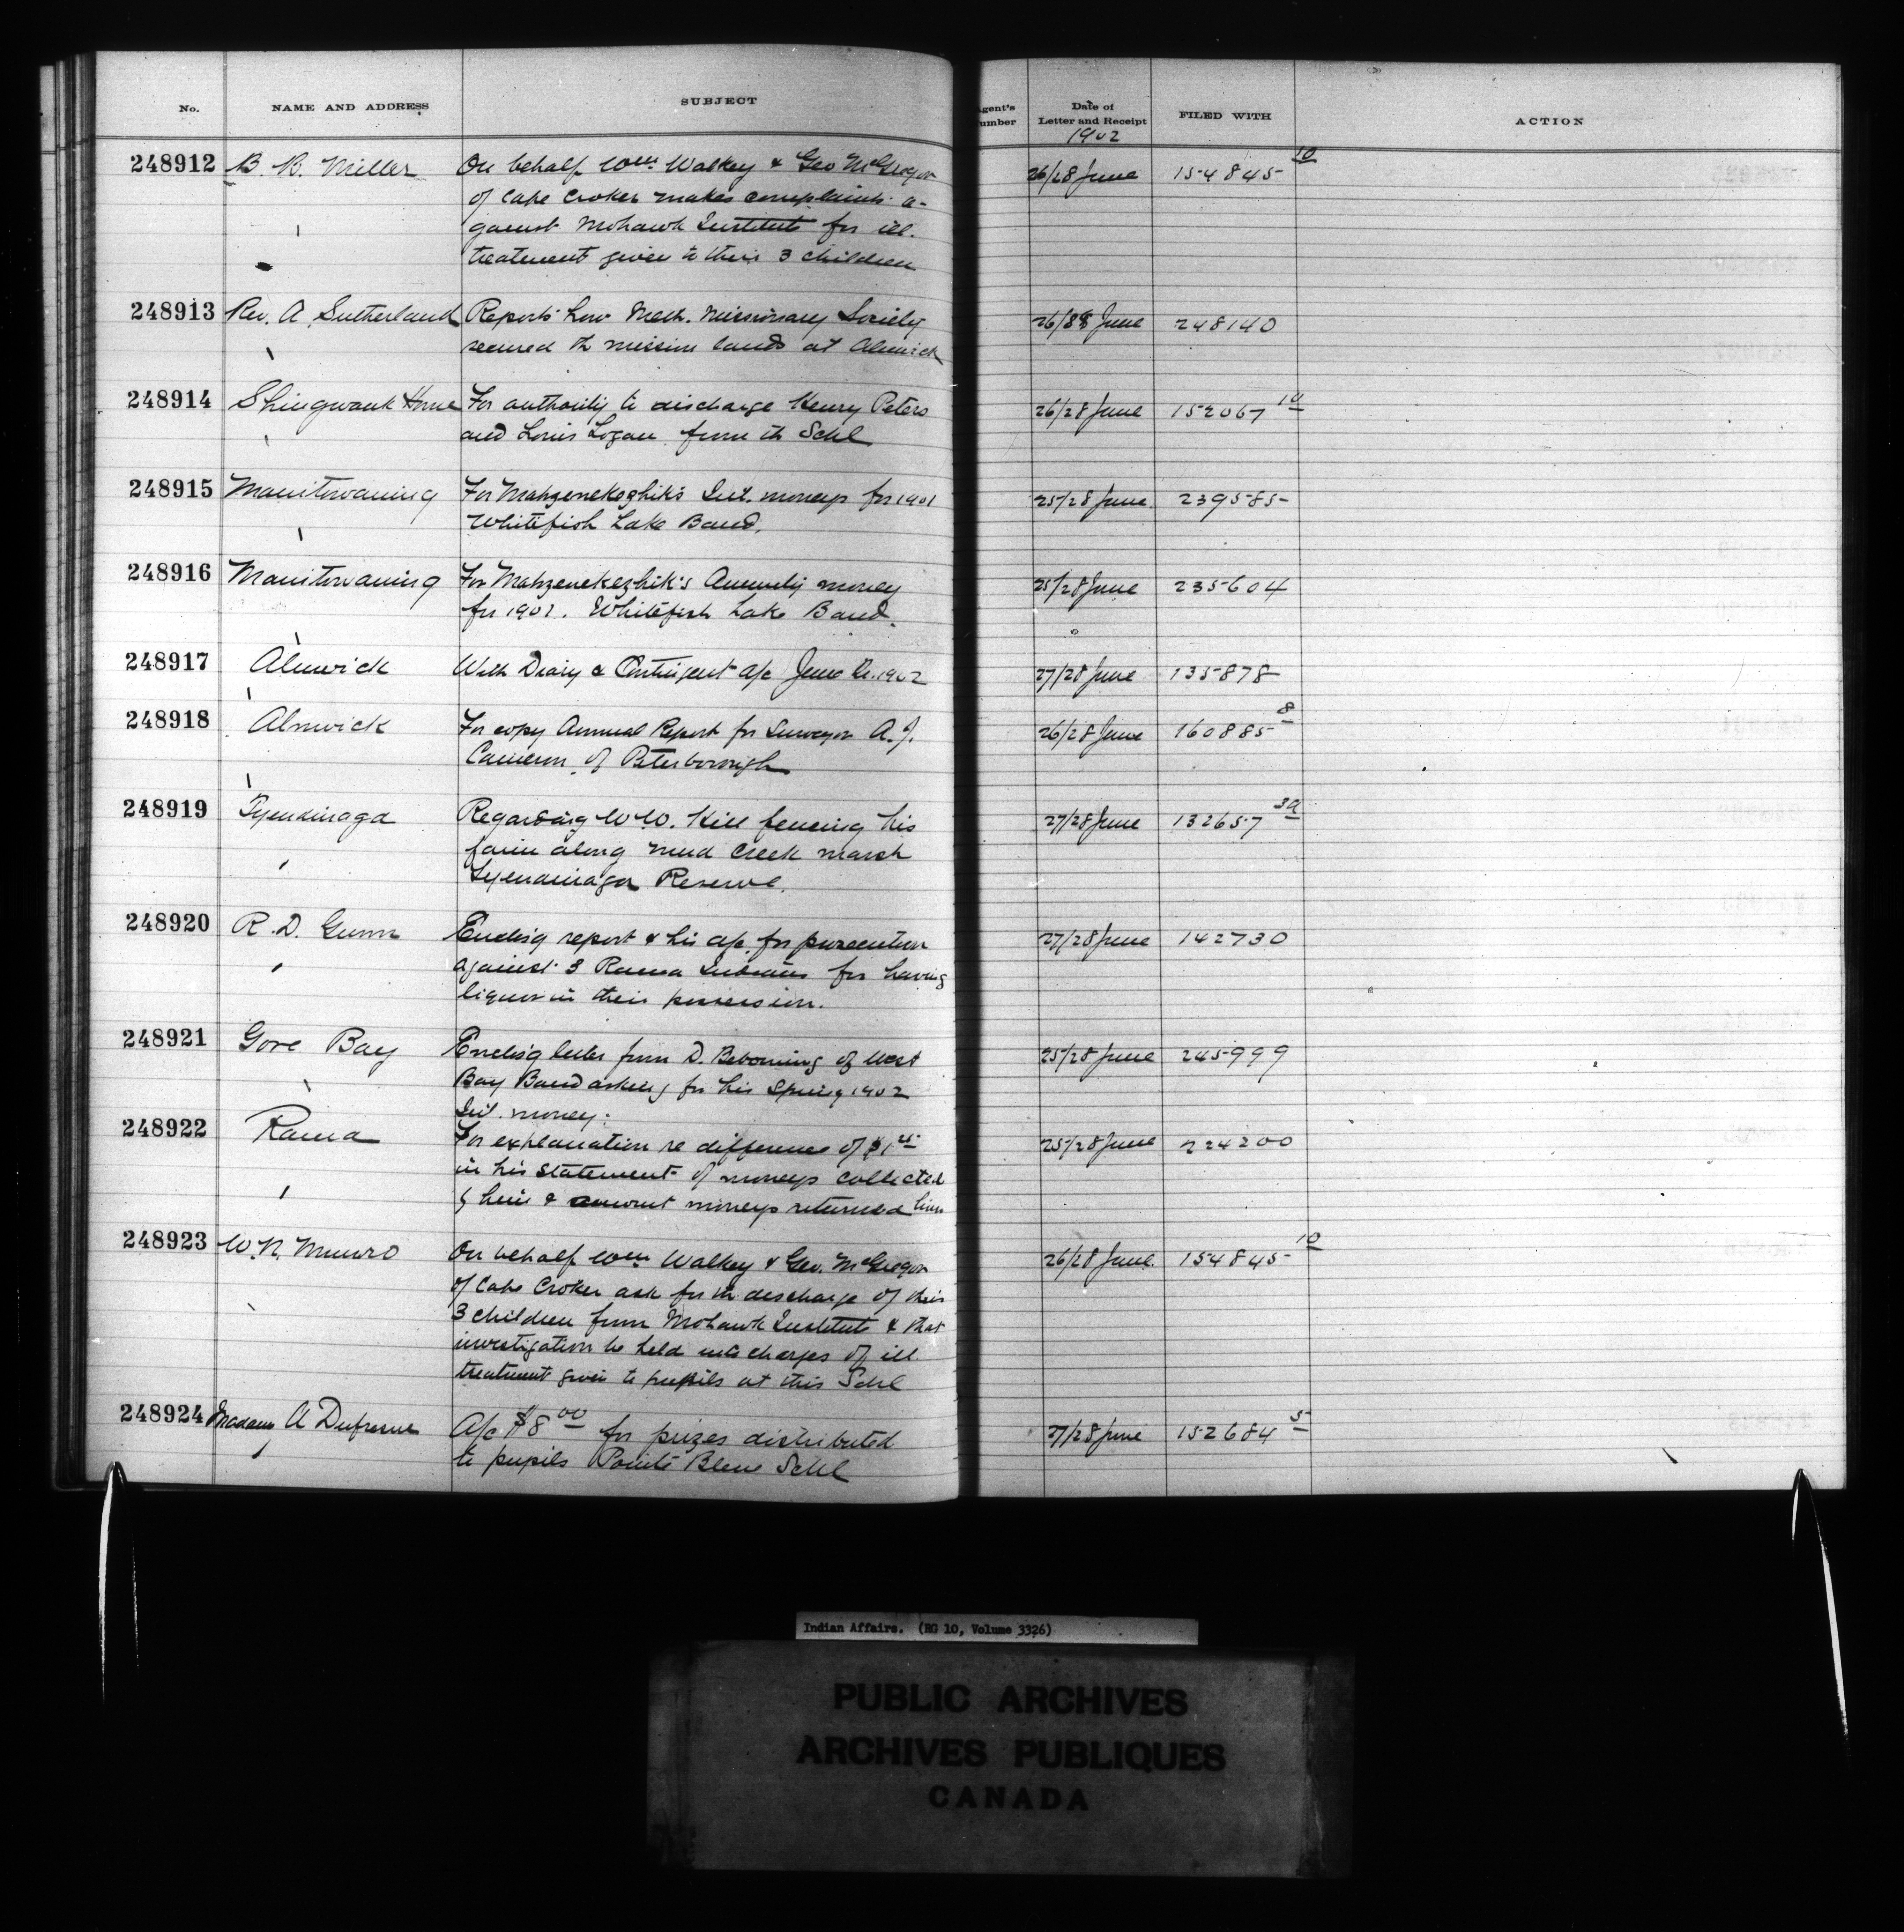 No. NAME AND ADDRESS SUBJECT Agent's Number Date of Letter and Receipt FILED WITH ACTION
1902
248912 B. B. Miller On behalf Wm. Walkey & Geo McGregor 26/28 June 154845 10
of Cape Croker makes complaints a-
gainst Mohawk Institute for ill.
treatment given to their 3 children
248913 Rev. A Sutherland Reports how Meth. Missionary Society 26/28 June 248140
secured th mission lands at Alnwick
248914 Shingwauk Home For authority to discharge Henry Peters 26/28 June 152067 10
and Louis Logan from th Schl
248915 Manitowaning For Mahzenekezhik's Int. moneys for 1901 25/28 June 239585
Whitefish Lake Band.
248916 Manitowaning For Mahzenekezhik's Annuity money 25/28 June 235604
for 1901. Whitefish Lake Band.
248917 Alnwick With Diary & Contingent a/c June 1902 27/28 June 135878
248918 Alnwick For copy Annual Report for Surveyor A. J. 26/28 June 160885 8
Cameron of Peterborough
248919 Tyendinaga Regarding W.W. Hill fencing his 27/28 June 132657 3a
farm along Mud Creek marsh
Tyendinaga Reserve.
248920 R. D. Gunn Encls'g report & his a/c for prosecution 27/28 June 142730
against 3 Rama Indians for having
liquor in their possession.
248921 Gore Bay Encls'g letter from D. Bebonning of West 25/28 June 245999
Bay Band asking for his Spring 1902
Int. money.
248922 Rama For explanation re difference of $1 25/28 June 224200
in his statement of moneys collected
by him & amount moneys returned him
248923 W. N. Munro On behalf Wm. Walkey & Geo. McGregor 26/28 June 154845 10
of Cape Croker ask for th discharge of their
3 children from Mohawk Institute & that
investigation be held into charges of ill
treatment given to pupils at this Schl
248924 Madam A Dufresne A/c $8 00 for prizes distributed 27/28 June 152684 5
to pupils Pointe Bleue Schl
Indian Affairs. (RG 10, Volume 3326)
PUBLIC ARCHIVES
ARCHIVES PUBLIQUES
CANADA